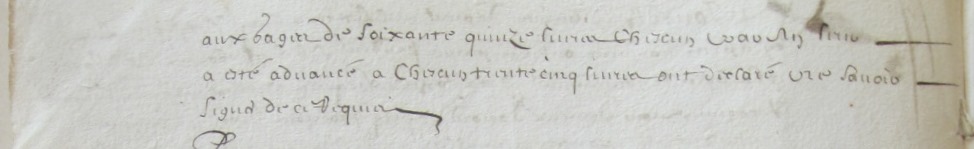 aux gages de soixante quinze livres Chacun par an
a esté advancé a Chacun trente cinq livres ont declaré ne savoir
signer de ce requis